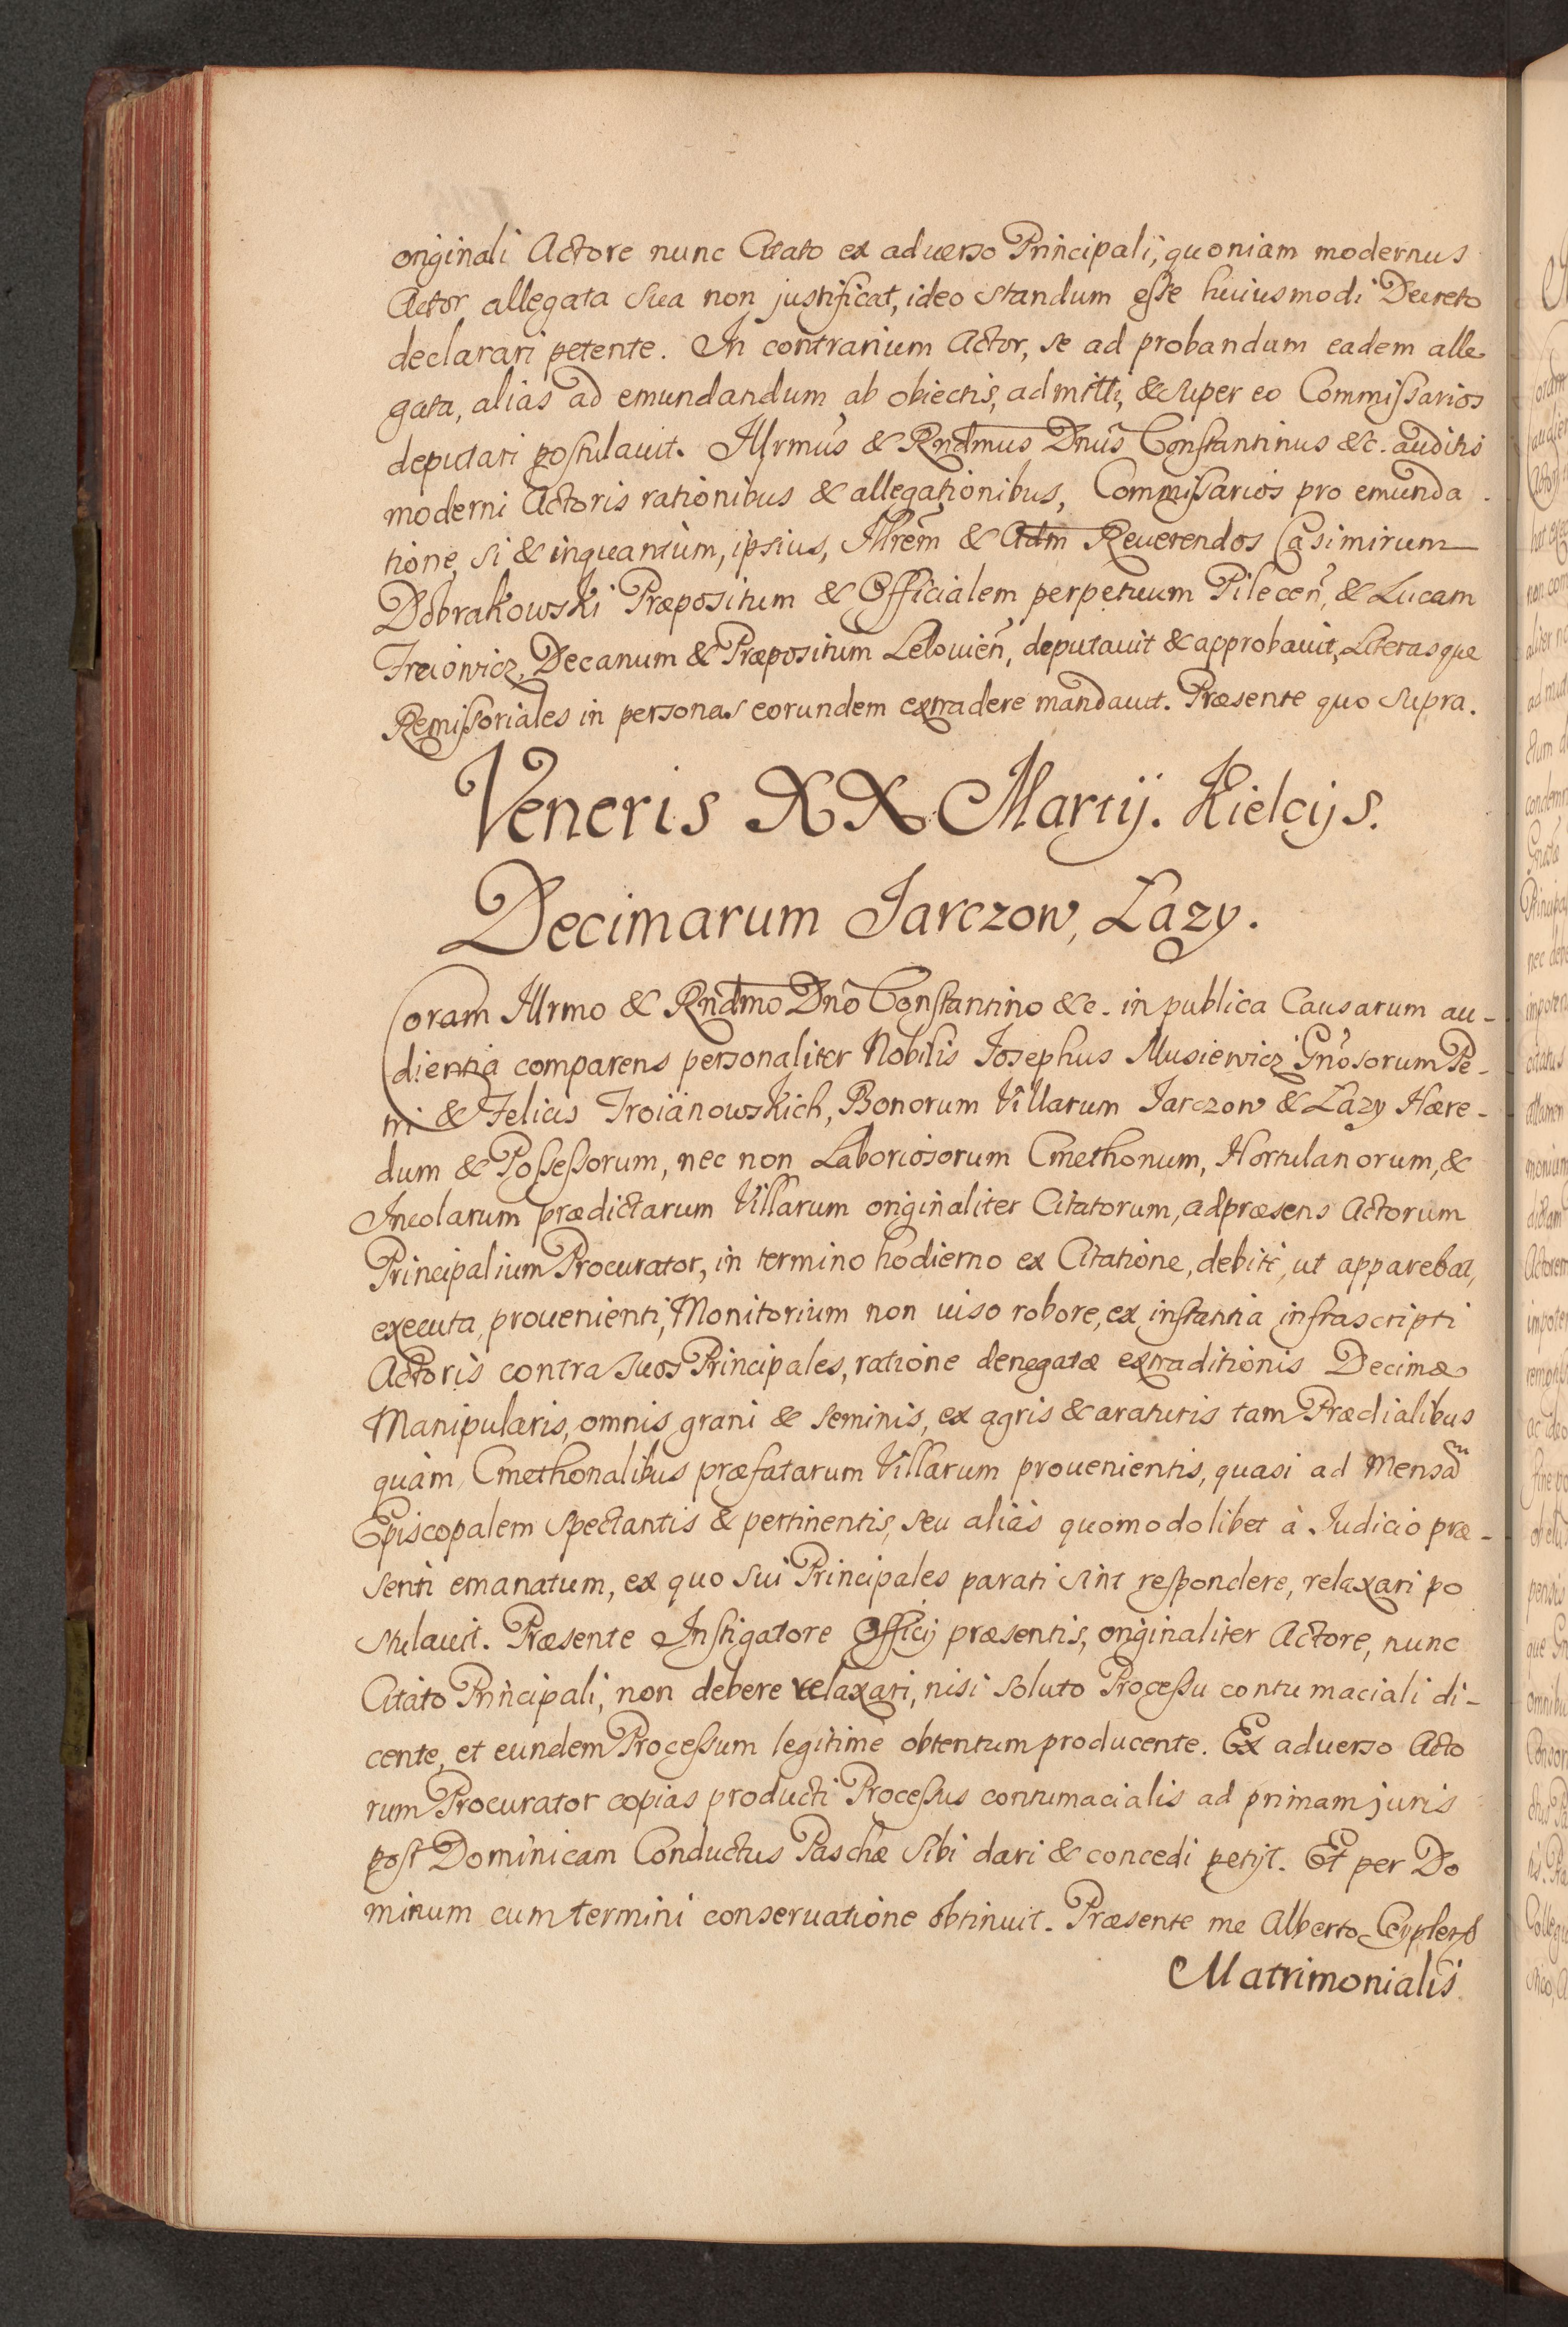 originali Actore nunc Citato ex aduerso Principali, quoniam modernus
Actor allegata sua non justificat, ideo standum esse huiusmodi Decreto
declarari petente. In contrarium Actor, se ad probandum eadem alle
gata, alias ad emundandum ab obiectis, admitti, & super eo Commissarios
deputari postulauit. Illrmus & Rndmus Dnus Constantinus &c. auditis
moderni Actoris rationibus & allegationibus, Commissarios pro emunda
tione, si & inquantùm, ipsius, Illrem & Adm Reuerendos Casimirum
Dobrakowski Præpositum & Officialem perpetuum Pilecen, & Lucam
Decanum & Præpositum Lelouien, deputauit & approbauit, Literasque
Remissoriales in personas eorundem extradere mandauit. Præsente quo supra.
Veneris XX Martij. Kielcijs.
Decimarum Jarczow, Lazy.
Coram Illrmo & Rndmo Dno Constantino &c. in publica Causarum au-
dientia comparens personaliter Nobilis Josephus Musiewicz Gnosorum Pe-
tri & Felicis Troianowskich, Bonorum Villarum Jarczow & Lazy Hære-
dum & Possessorum, nec non Laboriosorum Cmethonum, Hortulanorum, &
Incolarum prædictarum Villarum originaliter Citatorum, ad præsens Actorum
Principalium Procurator, in termino hodierno ex Citatione, debitè, ut apparebat,
executa, prouenienti, Monitorium non uiso robore, ex instantia infrascripti
Actoris contra suos Principales, ratione denegatæ extraditionis Decimæ
Manipularis, omnis grani & seminis, ex agris & araturis tam Prædialibus
quàm Cmethonalibus præfatarum Villarum prouenientis, quasi ad Mensam
Episcopalem spectantis & pertinentis, seu aliàs quomodolibet à Judicio præ-
senti emanatum, ex quo sui Principales parati sint respondere, relaxari po
stulauit. Præsente Instigatore Officij præsentis, originaliter Actore, nunc
Citato Principali, non debere relaxari, nisi soluto Processu contumaciali di-
cente, et eundem Processum legitimè obtentum producente. Ex aduerso Acto
rum Procurator copias producti Processus contumacialis ad primam juris
post Dominicam Conductus Paschæ sibi dari & concedi petijt. Et per Do
minum cum termini conseruatione obtinuit. Præsente me Alberto Cypler
Matrimonialis